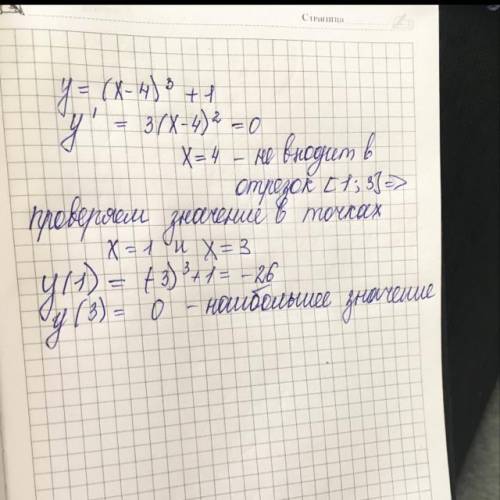 Страница
y = (x-4)³ + 1
y' = 3(x-4)² = 0
x = 4 - не входит в
отрезок [1; 3] =>
проверяем значение в точках
x = 1 и x = 3
y(1) = (-3)³ + 1 = -26
y(3) = 0 - наибольшее значение